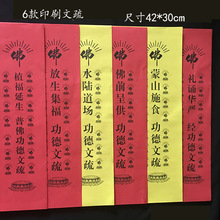 6款印刷文疏
尺寸42*30cm
佛
植福延生 普佛功德文疏
佛
放生集福 功德文疏
佛
水陆道场 功德文疏
佛
佛前呈供 功德文疏
佛
蒙山施食 功德文疏
佛
礼诵华严 经功德文疏